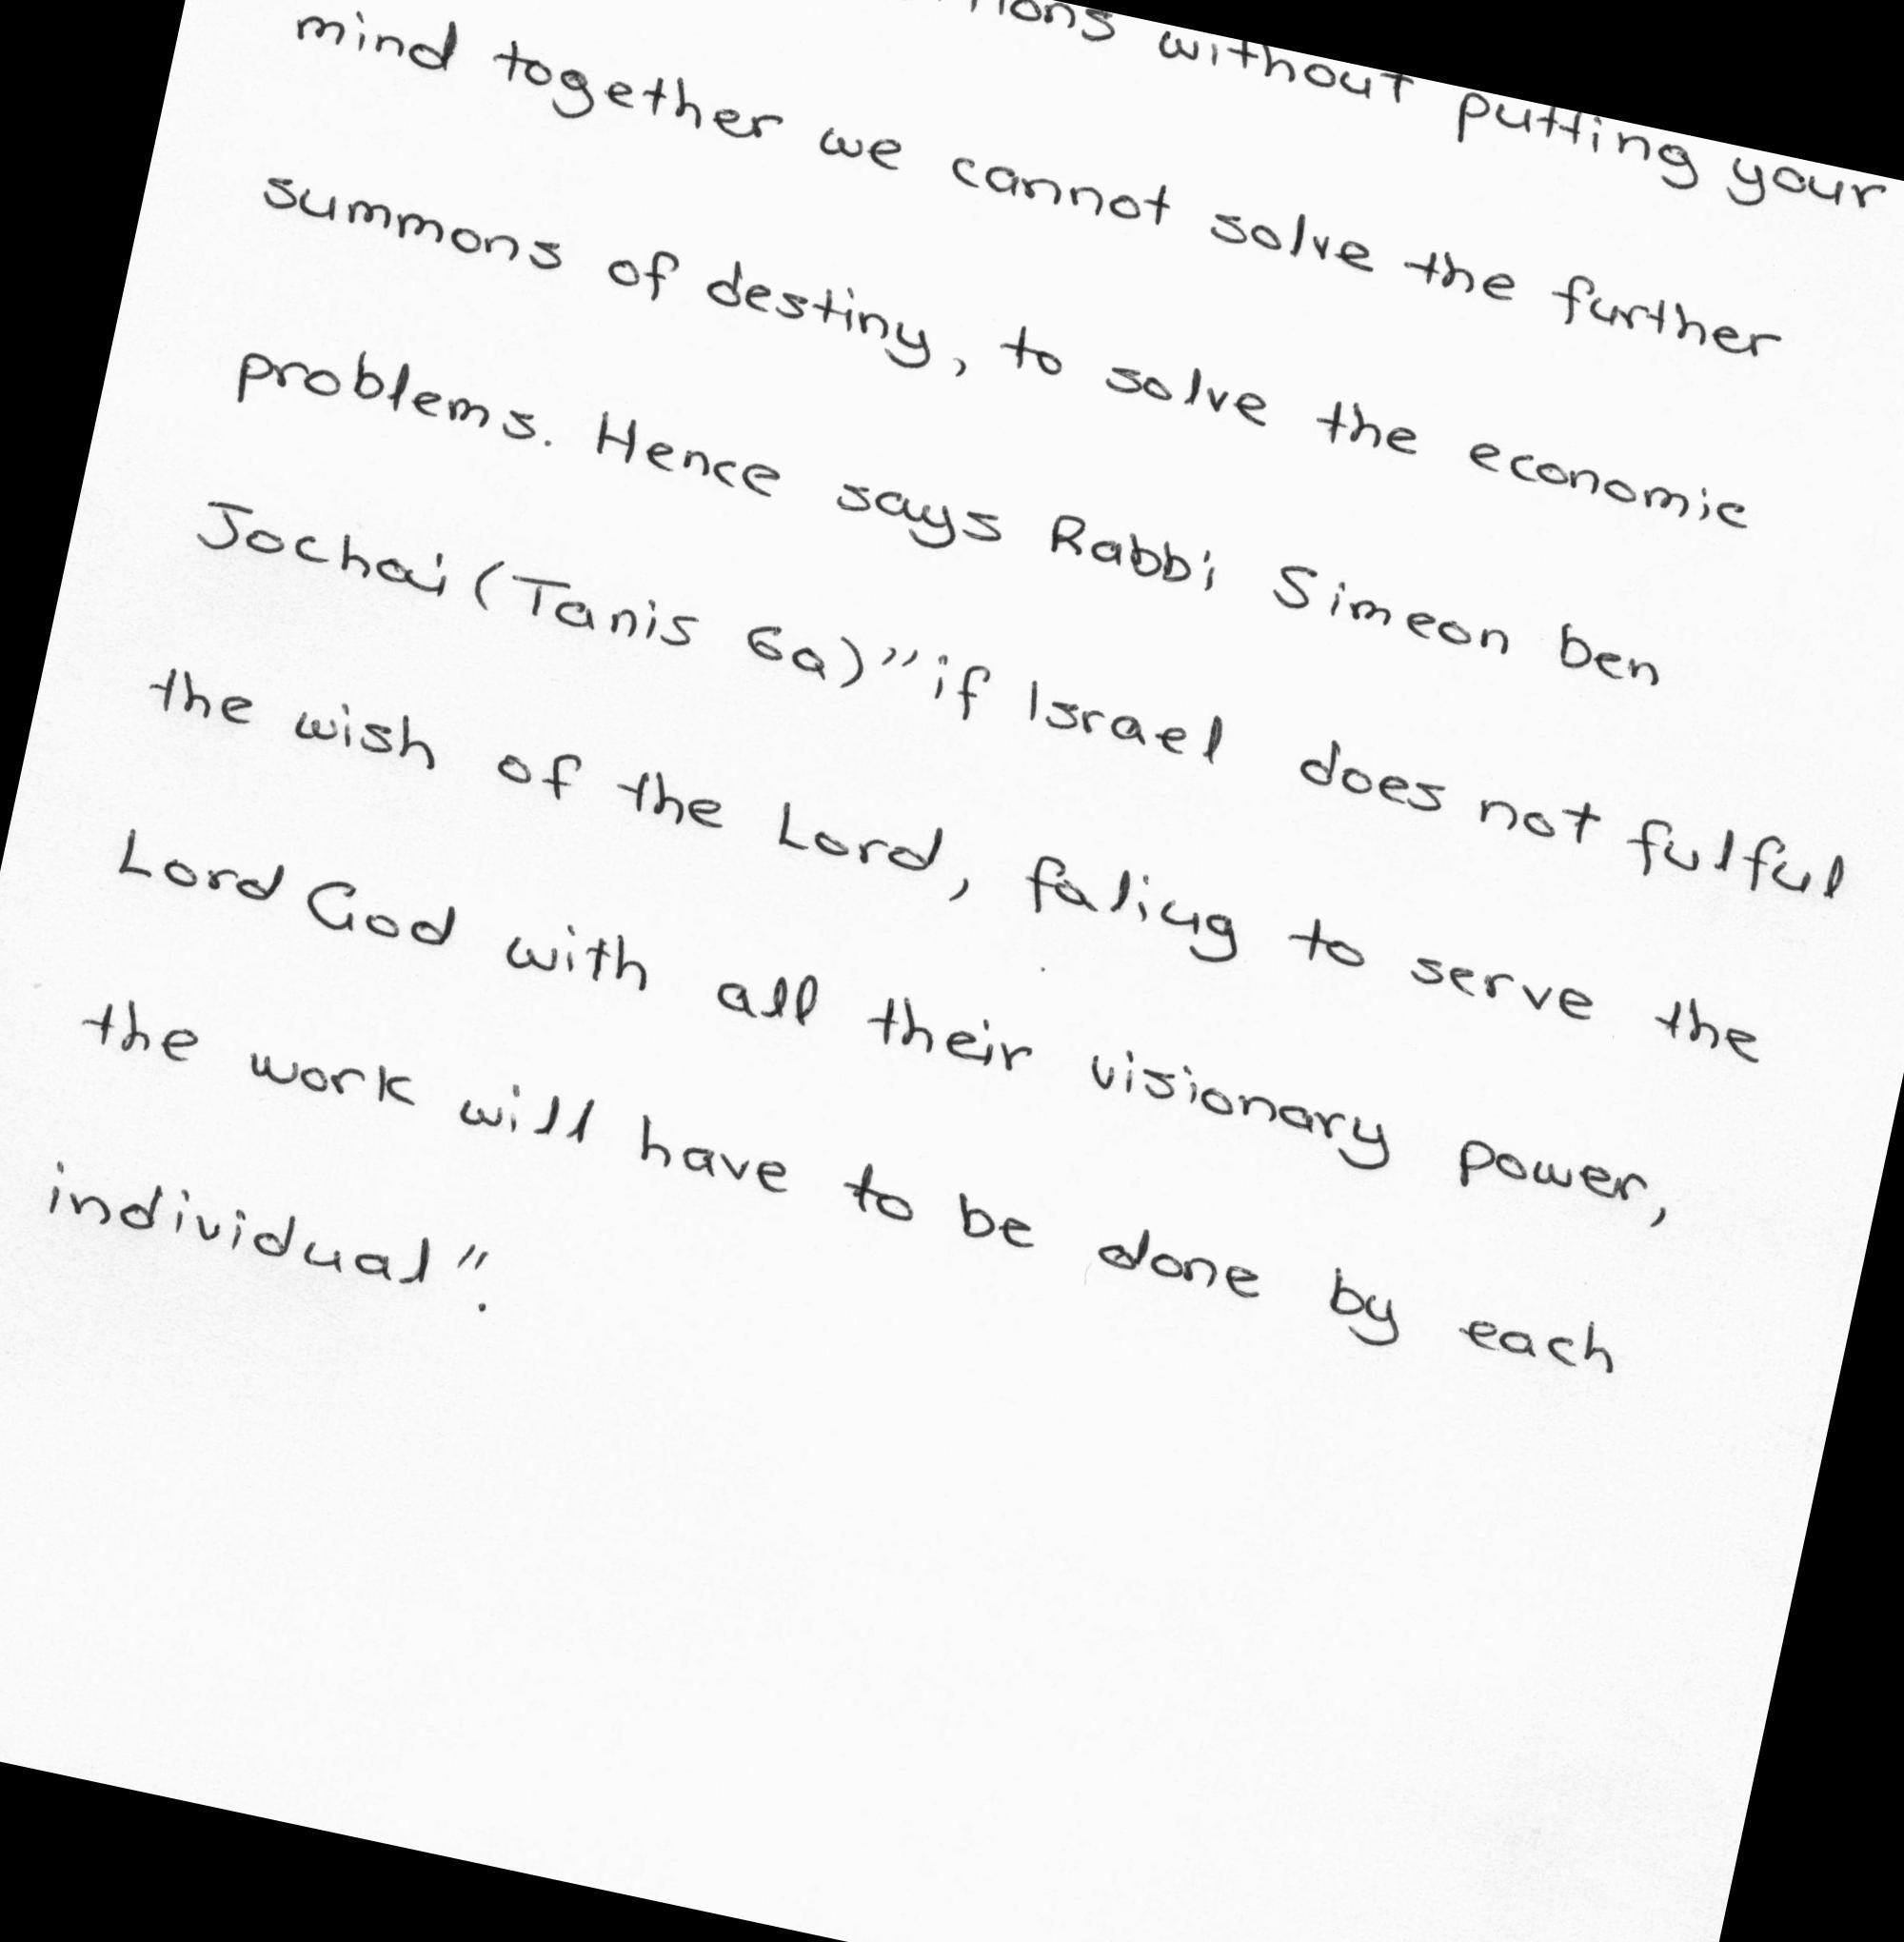 without putting your
mind together we cannot solve the further
summons of destiny, to solve the economic
problems. Hence says Rabbi Simeon ben
Jochai (Tanis 6a) "if Israel does not fulful
the wish of the Lord, faliug to serve the
Lord God with all their visionary power,
the work will have to be done by each
individual".